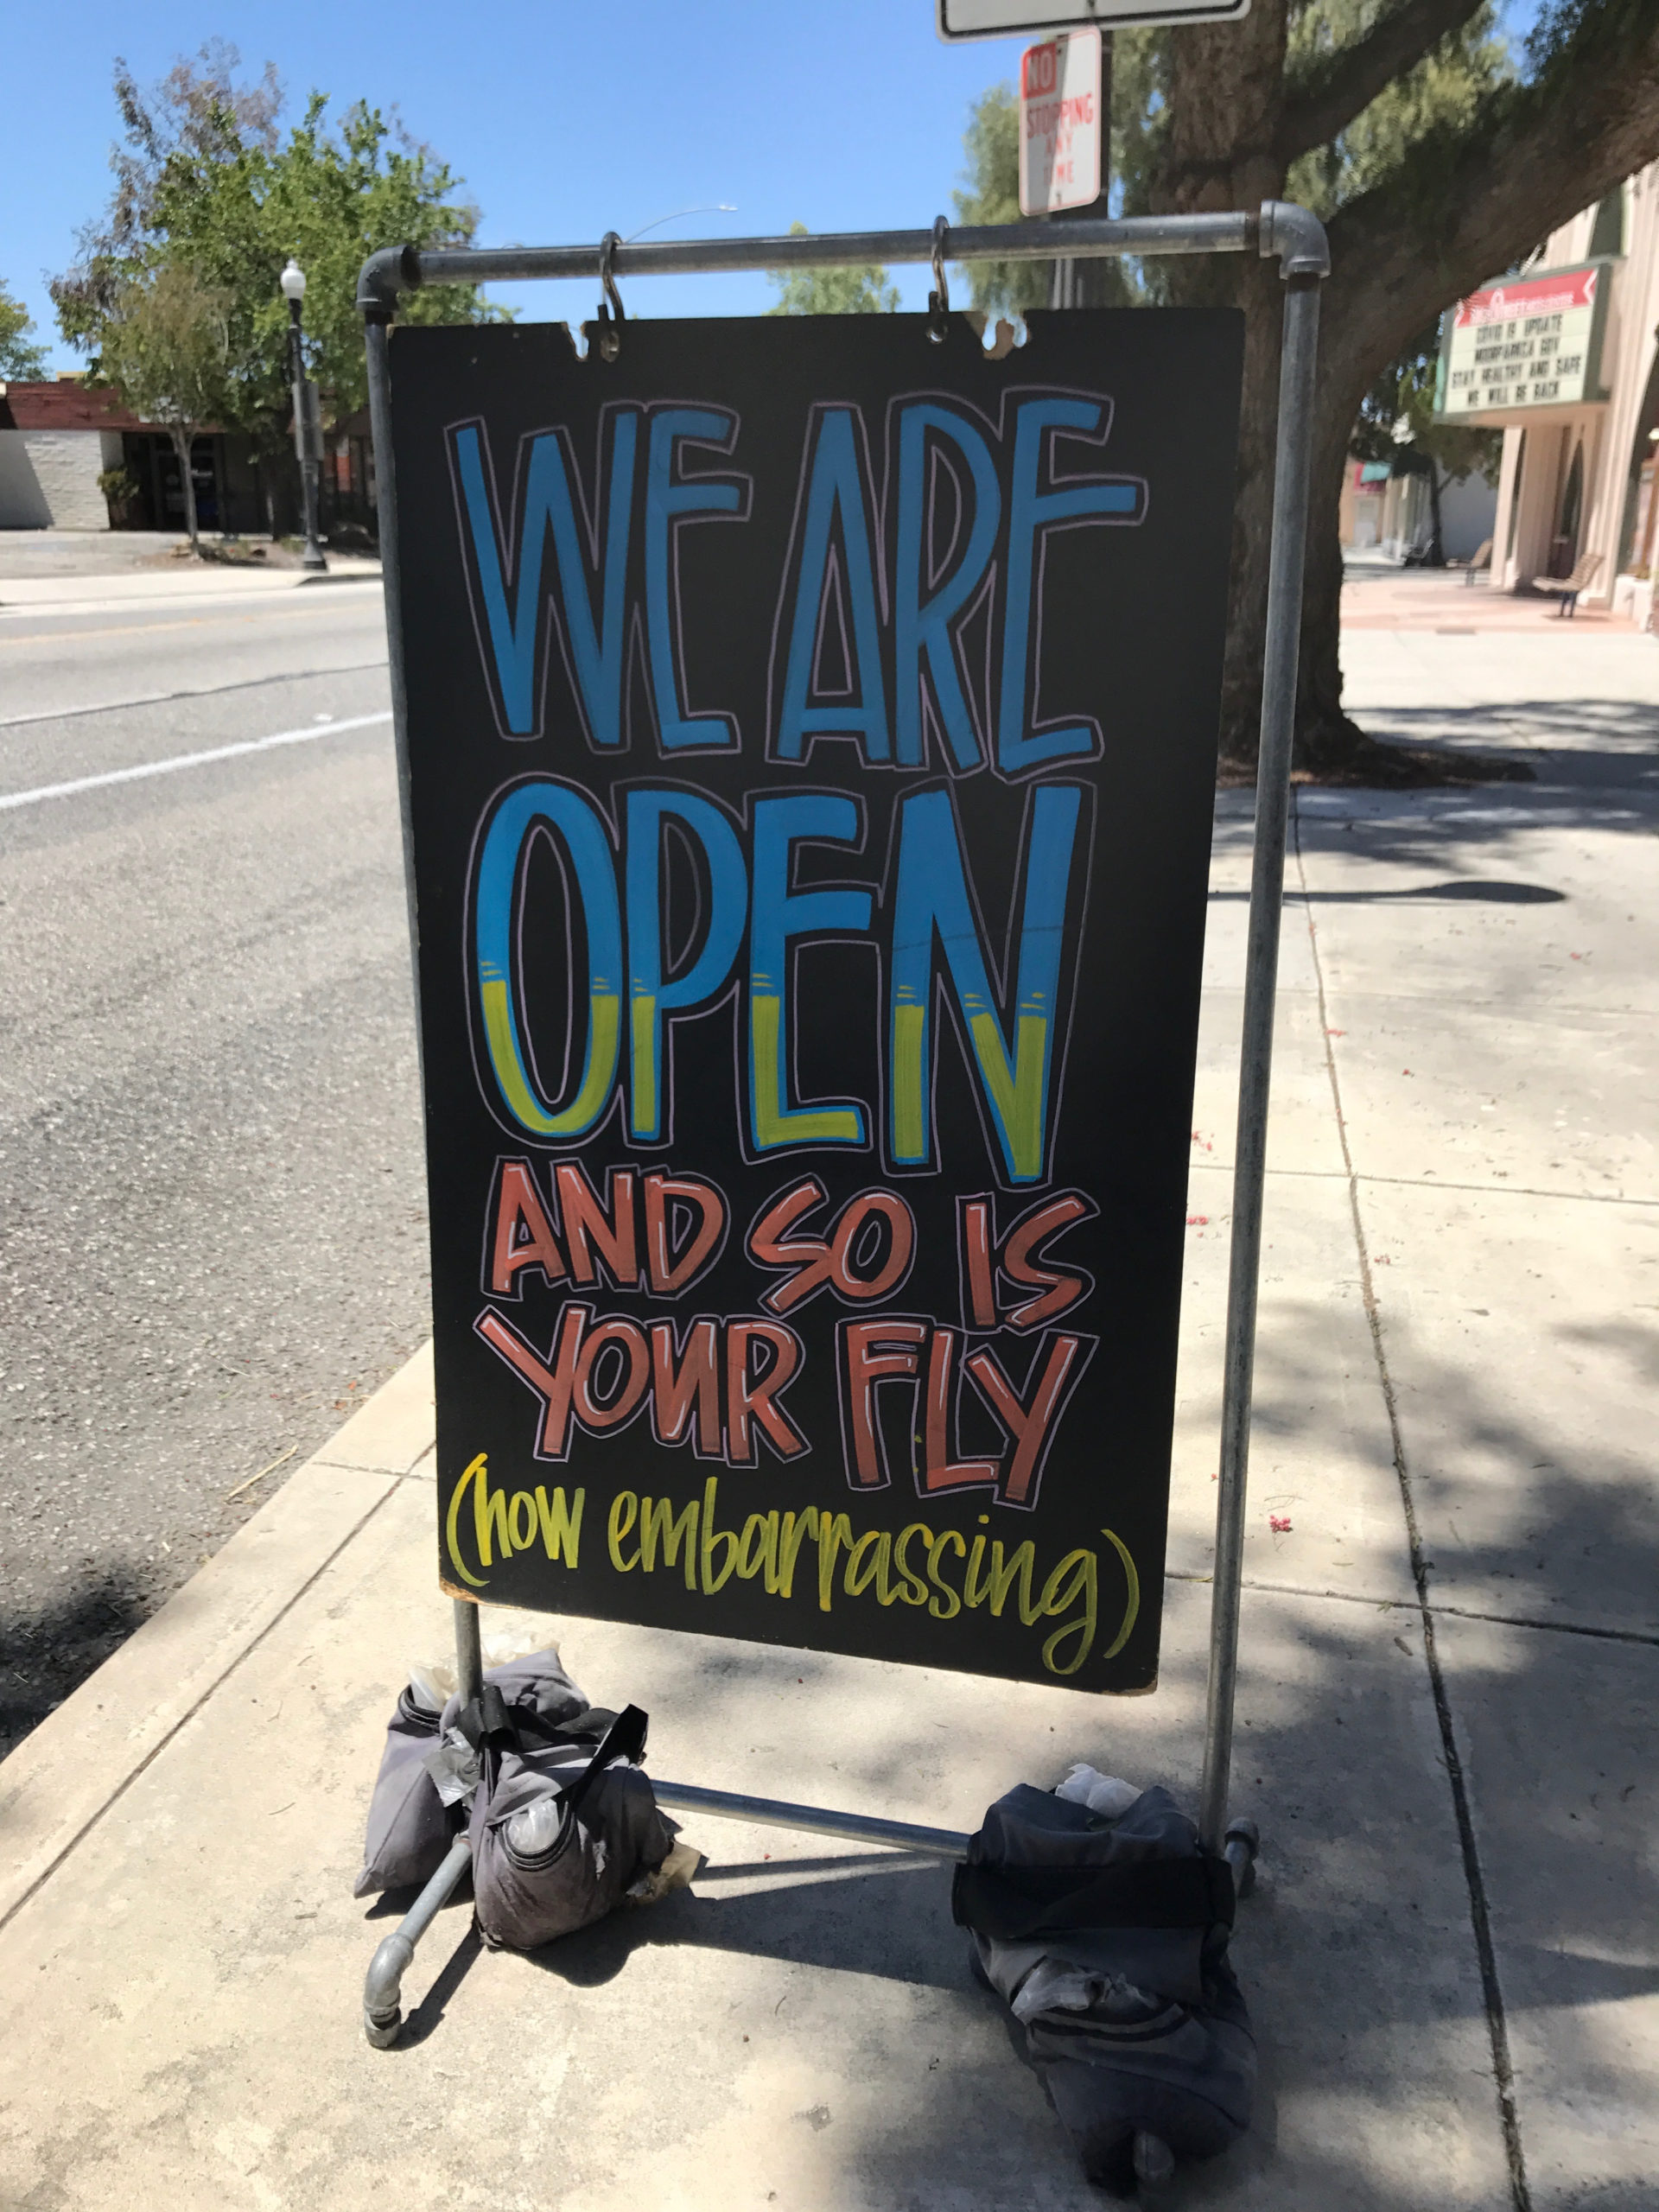 NO
STOPPING
ANY
TIME
COVID 19 UPDATE
MOORPARKCA GOV
STAY HEALTHY AND SAFE
WE WILL BE BACK
WE ARE
OPEN
AND SO IS
YOUR FLY
(how embarrassing)